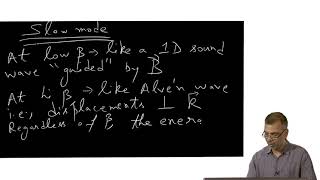 Slow mode
At low β → like a 1D sound
wave "guided" by B
At hi β → like Alfvén wave
i.e., displacements ⊥ k
Regardless of β, the energ